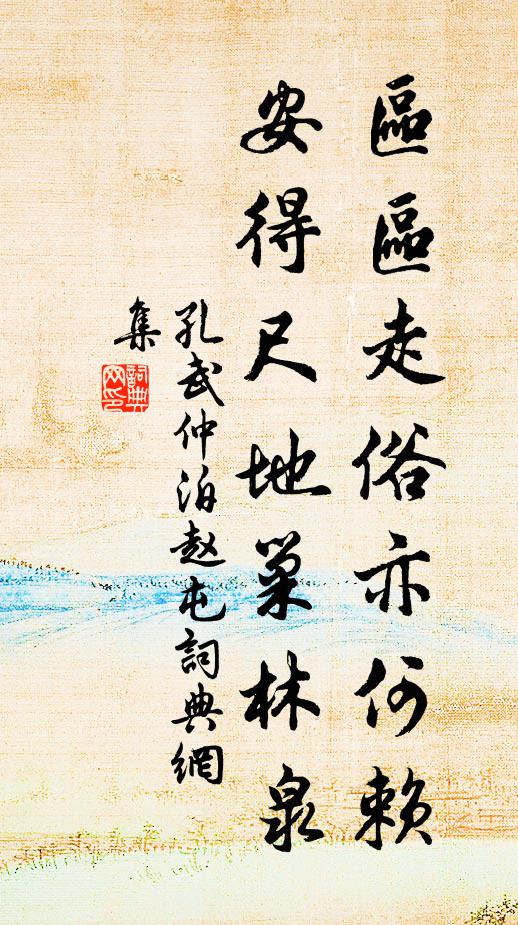 區區走俗亦何賴
安得尺地巢林泉
孔武仲泊赵屯詞典網
集
詞典
网印